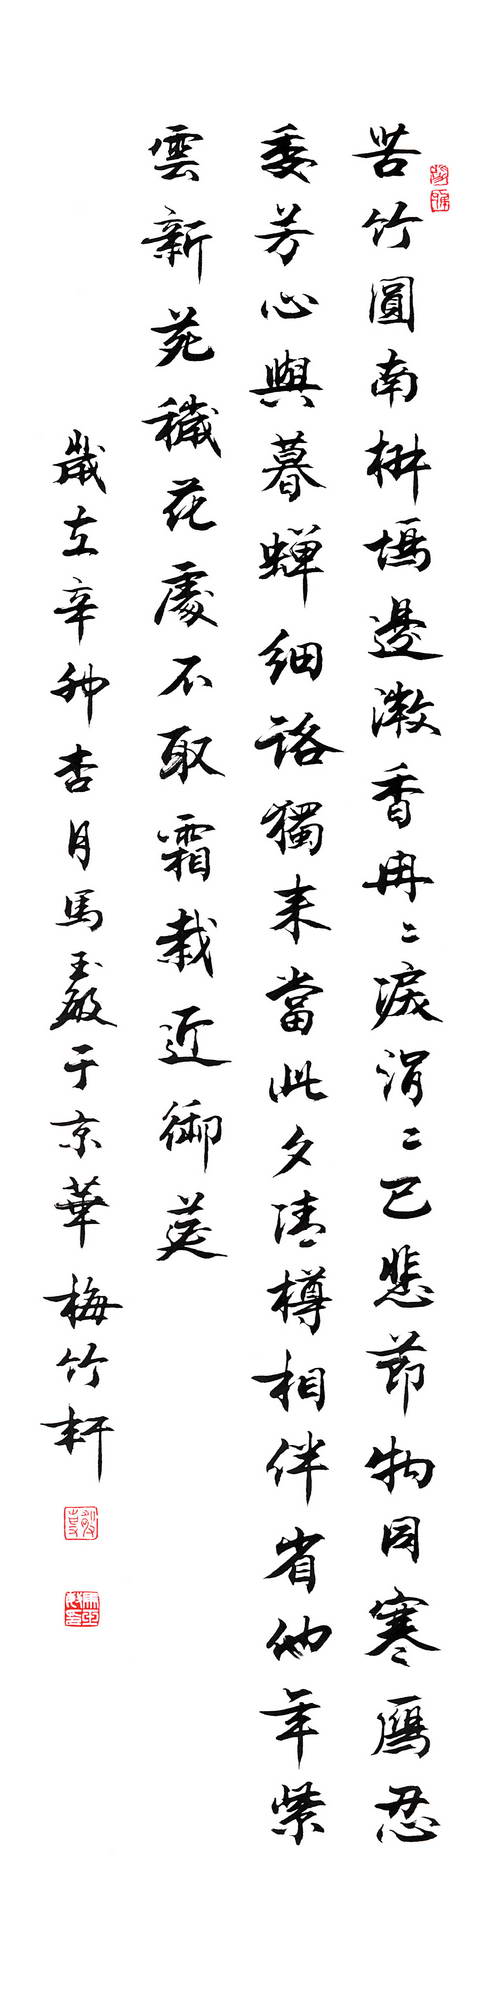 苦竹圓南椒塢邊微香冉〻淚涓〻已悲節物同寒鴈忍
委芳心與暮蟬細路獨來當此夕清樽相伴省他年紫
雲新苑穢花處不取霜栽近御莚
歲在辛卯杏月馬玉敏于京華梅竹軒